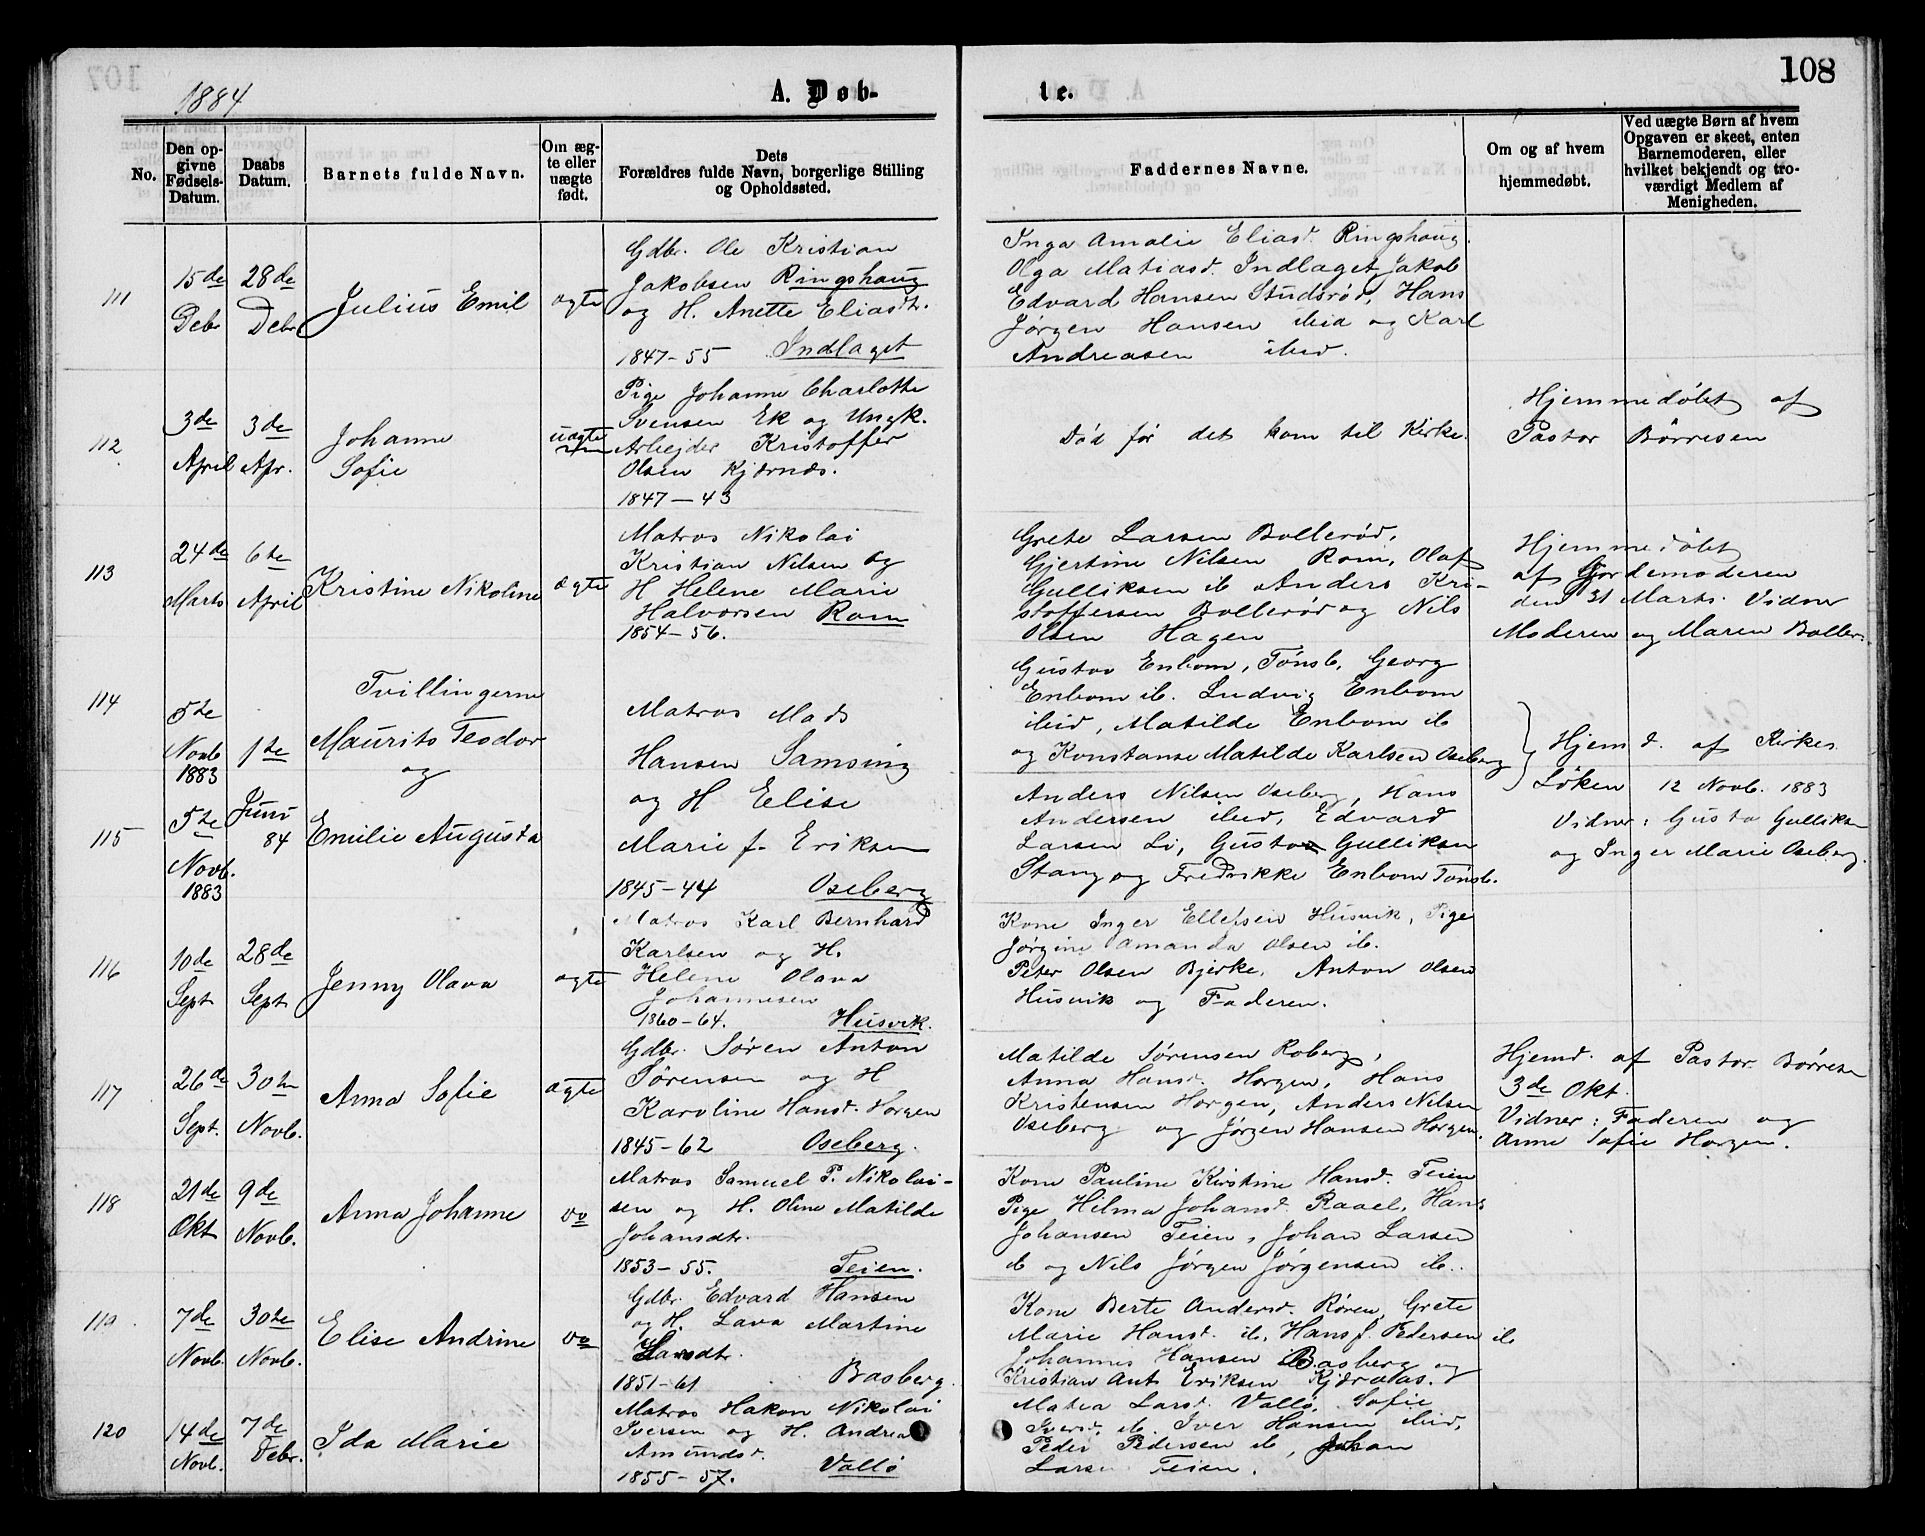 1884
A. Døb-
te.
108
No.
Den op-
givne
Fødsels-
Datum.
Daabs
Datum.
Barnets fulde Navn.
Om æg-
te eller
uægte
født.
Dets
Forældres fulde Navn, borgerlige Stilling
og Opholdssted.
Faddernes Navne.
Om og af hvem
hjemmedøbt.
Ved uægte Børn af hvem
Opgaven er skeet, enten
Barnemoderen, eller
hvilket bekjendt og tro-
værdigt Medlem af
Menigheden.
111
15de
Debr
28de
Debr
Julius Emil
ægte
Gdbr. Ole Kristian
Jakobsen Ringshaug
og H. Anette Eliasdtr.
1847-55 Indlaget
Inga Amalie Eliasd. Ringshaug.
Olga Matiasd. Indlaget, Jakob
Edvard Hansen Studsrød, Hans
Jørgen Hansen ibid og Karl
Andreasen ibid.
112
3de
April
3de
Apr.
Johanne
Sofie
uægte
Pige Johanne Charlotte
Svensen Ek og Ungk.
Arbejder Kristoffer
Olsen Kjærnæs.
1847-43
Død før det kom til Kirke.
Hjemmedøbt af
Pastor Børresen
113
24de
Marts
6te
April
Kristine Nikoline
ægte
Matros Nikolai
Kristian Nilsen og
H Helene Marie
Halvorsen Rom
1854-56.
Grete Larsen Bollerød,
Gjertine Nilsen Rom, Olaf
Gulliksen ib Anders Kri-
stoffersen Bollerød og Nils
Olsen Hagen
Hjemmedøbt
af Gjordemoderen
den 31 Marts. Vidner
Moderen og Maren Boller.
114
5te
Novb
1883
1te
Juni
84
Tvillingerne
Maurits Teodor
og
115
5te
Novb.
1883
Emilie Augusta
Matros Mads
Hansen Samsing
og H Elise
Marie f. Eriksen
1845-44 Oseberg
Gustav Enbom, Tønsb, Georg
Enbom ib. Ludvig Enbom
ibid, Matilde Enbom ib
og Konstanse Matilde Karlsen Oseberg
Anders Nilsen Oseberg, Hans
Andersen ibid, Edvard
Larsen Li, Gustav Gulliksen
Stang og Fredrikke Enbom Tønsb.
Hjemd. af Kirkes.
Løken 12 Novb. 1883
Vidner: Gusta Gulliksen
og Inger Marie Oseberg.
116
10de
Sept
28de
Sept
Jenny Olava
ægte
Matros Karl Bernhard
Karlsen og H.
Helene Olava
Johannesen
1860-64. Husvik.
Kone Inger Ellefsen Husvik, Pige
Jørgine Amanda Olsen ib.
Peter Olsen Bjerke, Anton Olsen
Husvik og Faderen.
117
26de
Sept.
30te
Novb.
Anna Sofie
ægte
Gdbr. Søren Anton
Sørensen og H
Karoline Hansd. Horgen
1845-62 Oseberg.
Matilde Sørensen Roberg,
Anna Hansd. Horgen, Hans
Kristensen Horgen, Anders Nilsen
Oseberg og Jørgen Hansen Horgen.
Hjemd. af Pastor Børresen
3de Okt.
Vidner: Faderen og
Anne Sofie Horgen.
118
21de
Okt
9de
Novb.
Anna Johanne
do
Matros Samuel P. Nikolai-
sen og H. Oline Matilde
Johansdtr.
1853-55. Teien.
Kone Pauline Kirstine Hansd. Teien
Pige Hilma Johansd. Raael, Hans
Johansen Teien, Johan Larsen
ib og Nils Jørgen Jørgensen ib.
119
7de
Novb.
30te
Novb.
Elise Andrine
do
Gdbr. Edvard Hansen
og H. Lava Martine
Hansdtr.
1851-61 Basberg.
Kone Berte Andersd. Røren, Grete
Marie Hansd. ib, Hans J. Pedersen ib
Johannes Hansen Basberg og
Kristian Ant Eriksen Kjærnæs.
120
14de
Novb.
7de
Debr.
Ida Marie
Matros Hakon Nikolai
Iversen og H. Andrea
Amundsd.
1855-57. Vallø
Matea Larsd. Vallø, Sofie
Iversd. ib. Iver Hansen ibid,
Peder Pedersen ib, Johan
Larsen Teien.